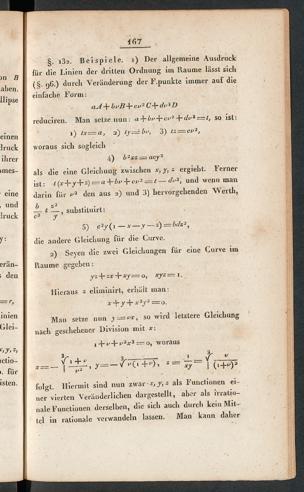 167
§. 130. Beispiele. 1) Der allgemeine Ausdruck
für die Linien der dritten Ordnung im Raume lässt sich
(§. 96.) durch Veränderung der F.punkte immer auf die
einfache Form:
aA+bvB+cv²C+dv³D
reduciren. Man setze nun: a+bv+cv²+dv³=t, so ist:
1) tx=a, 2) ty=bv, 3) tz=cv²,
woraus sogleich
4) b²xz=acy²
als die eine Gleichung zwischen x, y, z ergiebt. Ferner
ist: t(x+y+z)=a+bv+cv²=t—dv³, und wenn man
darin für v³ den aus 2) und 3) hervorgehenden Werth,
substituirt:
5) c²y(1—x—y—z)=bdz²,
die andere Gleichung für die Curve.
2) Seyen die zwei Gleichungen für eine Curve im
Raume gegeben:
yz+zx+xy=0, xyz=1.
Hieraus z eliminirt, erhält man:
x+y+x²y²=0.
Man setze nun y=vx, so wird letztere Gleichung
nach geschehener Division mit x:
1+v+v²x³=0, woraus
folgt. Hiermit sind nun zwar x, y, z als Functionen ei-
ner vierten Veränderlichen dargestellt, aber als irratio-
nale Functionen derselben, die sich auch durch kein Mit-
tel in rationale verwandeln lassen. Man kann daher